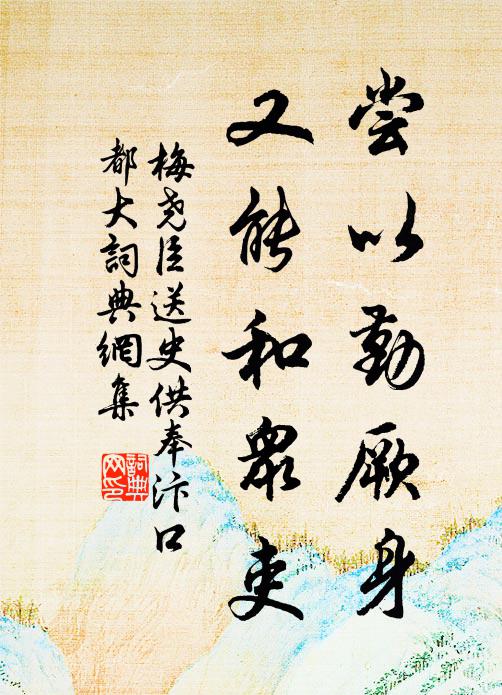 尝以勤厥身
又能和眾吏
梅尧臣送史供奉汴口
都大詞典網集
詞典
网印